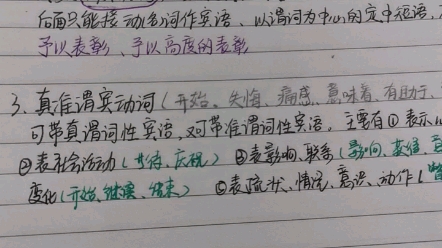 后面只能接动名词作宾语、以谓词为中心的定中短语,
予以表彰、予以高度的表彰
3、真准谓宾动词(开始、失悔、痛感、意味着、有助于、
可带真谓词性宾语,又可带准谓词性宾语。主要有①表示
②表社会活动(优待、庆祝) ③表影响、联系(影响、兼任、
变化(开始、继续、结束) ⑥表症状、情况、意识、动作(